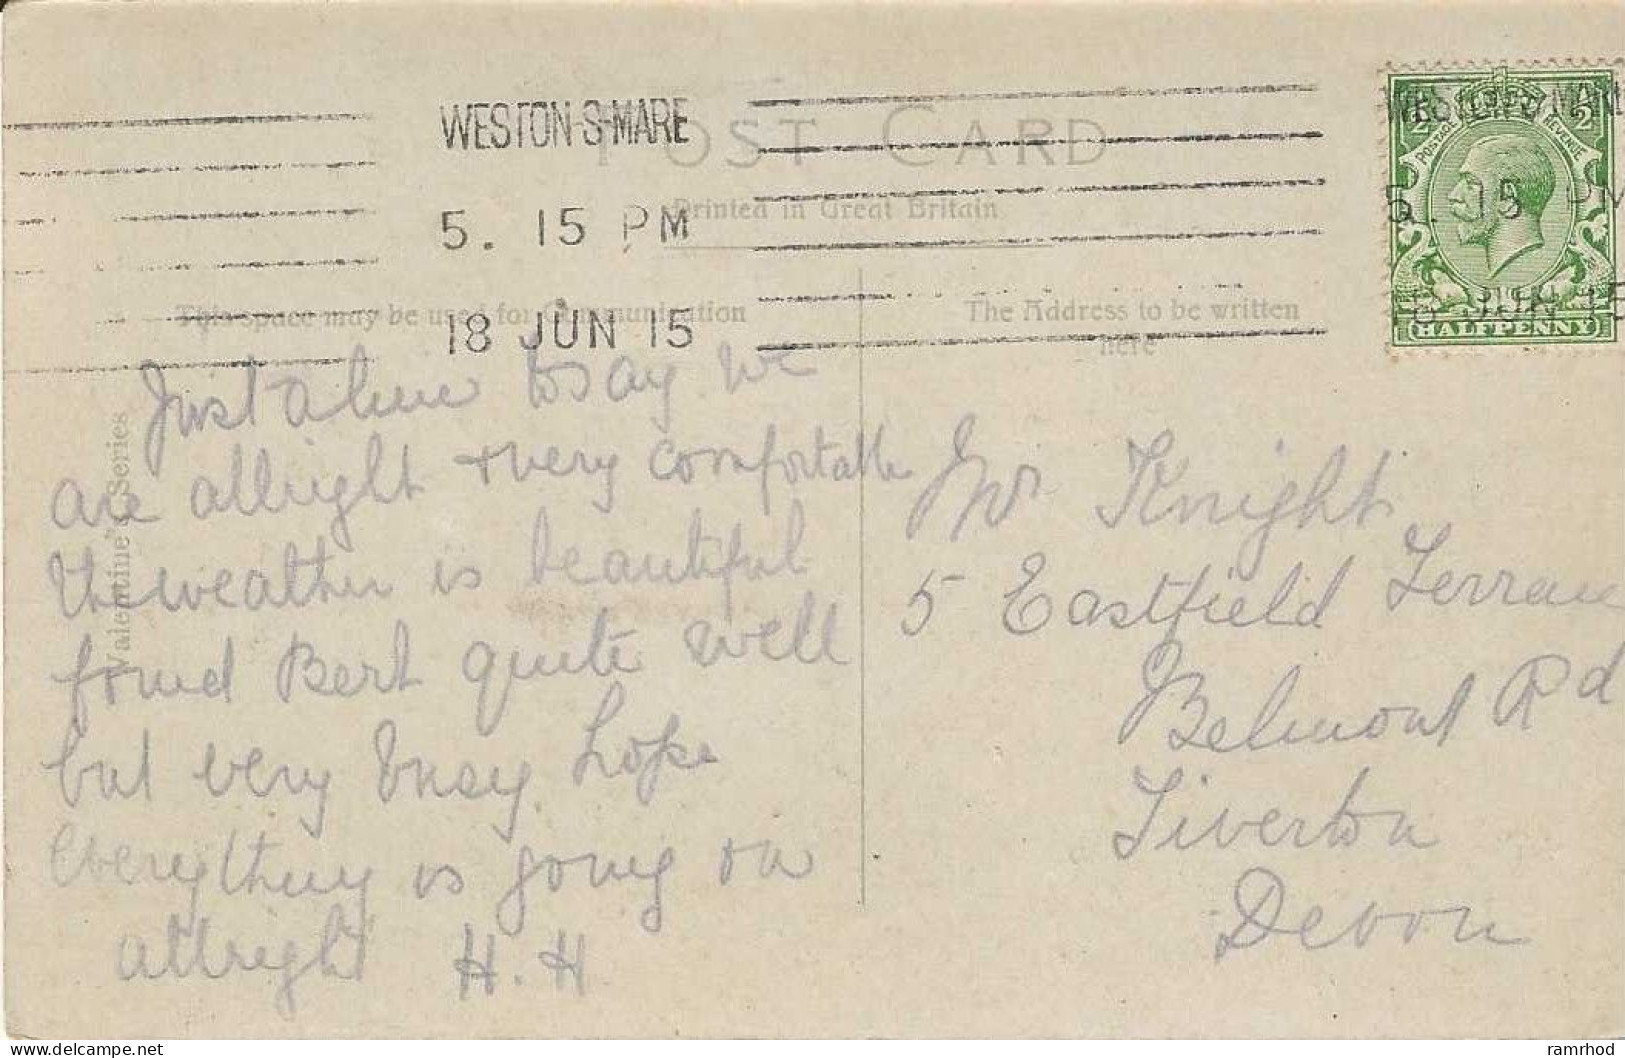 POST CARD
Printed in Great Britain
WESTON-S-MARE
5. 15 PM
18 JUN 15
WESTON-S-MARE
5. 15 PM
18 JUN 15
POSTAGE REVENUE
1/2 1/2
HALFPENNY
This space may be used for Communication
The Address to be written
here
Valentine's Series
Just a line to say we
are allright & very comfortable
the weather is beautiful
found Bert quite well
but very busy. hope
Everything is going on
allright H.H
Mr Knight
5 Eastfield Terrace
Belmont Rd
Tiverton
Devon
ramrhod
https://www.delcampe.net